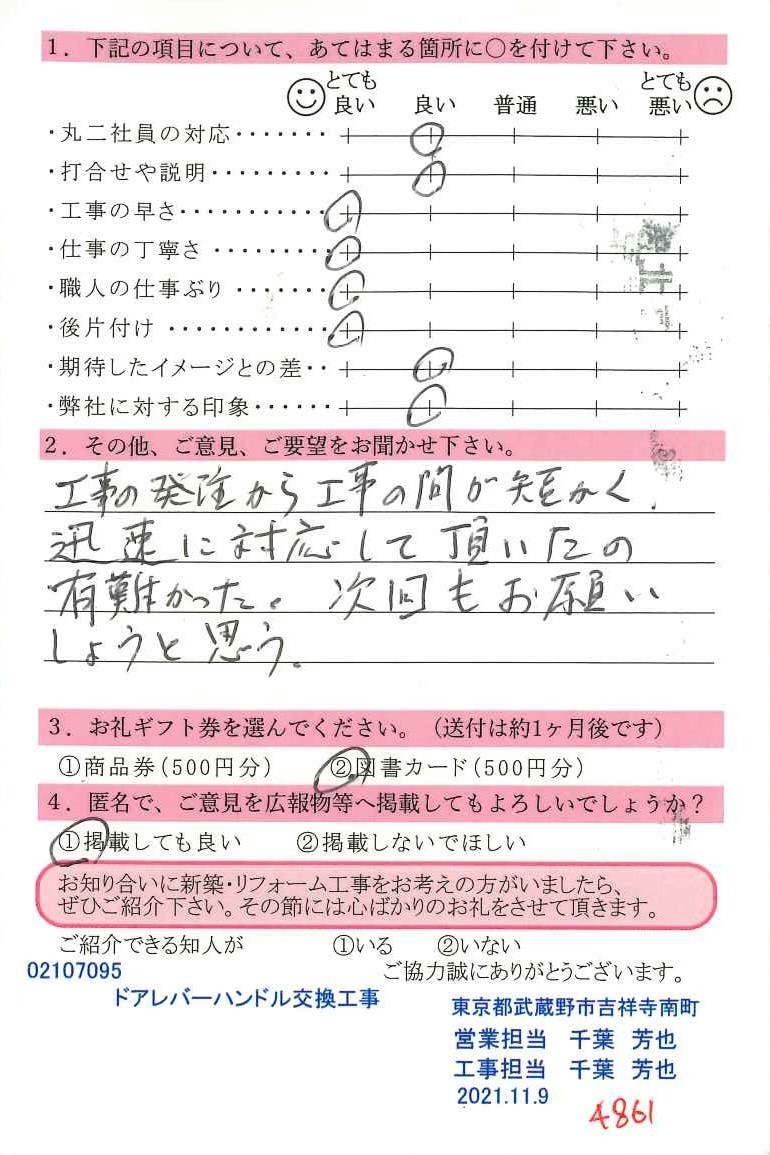 1．下記の項目について、あてはまる箇所に○を付けて下さい。
とても とても
良い 良い 普通 悪い 悪い
・丸二社員の対応・・・・・・・
・打合せや説明・・・・・・・・・
・工事の早さ・・・・・・・・・・・
・仕事の丁寧さ ・・・・・・・・・
・職人の仕事ぶり ・・・・・・・
・後片付け ・・・・・・・・・・・・
・期待したイメージとの差・・
・弊社に対する印象・・・・・・
2．その他、ご意見、ご要望をお聞かせ下さい。
工事の発注から工事の間が短かく、
迅速に対応して頂いたの
有難かった。次回もお願い
しようと思う。
3．お礼ギフト券を選んでください。（送付は約1ヶ月後です）
①商品券(500円分) ②図書カード(500円分)
4．匿名で、ご意見を広報物等へ掲載してもよろしいでしょうか？
①掲載しても良い ②掲載しないでほしい
お知り合いに新築・リフォーム工事をお考えの方がいましたら、
ぜひご紹介下さい。その節には心ばかりのお礼をさせて頂きます。
ご紹介できる知人が ①いる ②いない
02107095 ご協力誠にありがとうございます。
ドアレバーハンドル交換工事
東京都武蔵野市吉祥寺南町
営業担当 千葉 芳也
工事担当 千葉 芳也
2021.11.9
4861